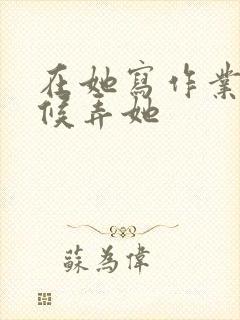 在她寫作業
候弄她
蘇為偉